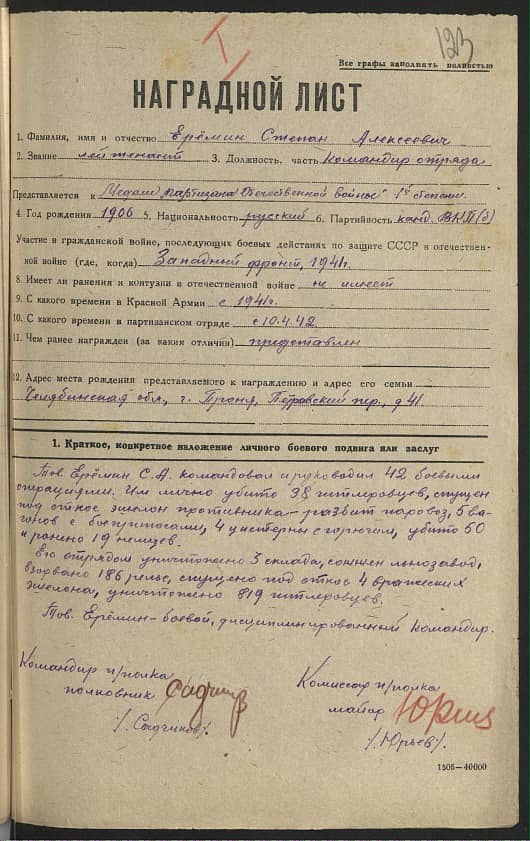 I
123
Все графы заполнять полностью
НАГРАДНОЙ ЛИСТ
1. Фамилия, имя и отчество Ерёмин Степан Алексеевич
2. Звание лейтенант 3. Должность, часть командир отряда
Представляется к Медали "Партизана Отечественной войны" 1й степени
4. Год рождения 1906 5. Национальность русский 6. Партийность канд. ВКП(б)
Участие в гражданской войне, последующих боевых действиях по защите СССР в отечествен-
ной войне (где, когда) Западный фронт, 1941г.
8. Имеет ли ранения и контузии в отечественной войне не имеет
9. С какого времени в Красной Армии с 1941г.
10. С какого времени в партизанском отряде с 10.4.42
11. Чем ранее награжден (за какия отличия) представлен
12. Адрес места рождения представляемого к награждению и адрес его семьи
Челябинская обл., г. Петровский пер., д 41.
1. Краткое, конкретное изложение личного боевого подвига или заслуг
Тов. Ерёмин С.А. командовал и руководил 42 боевыми
операциями. Им лично убито 38 гитлеровцев, спущен
под откос эшелон противника - разбит паровоз, 5 ва-
гонов с боеприпасами, 4 цистерны с горючим, убито 50
и ранено 19 немцев.
Его отрядом уничтожено 3 склада, сожжен льнозавод,
взорвано 186 рельс, спущено под откос 4 вражеских
эшелона, уничтожено 819 гитлеровцев.
Тов. Ерёмин - боевой, дисциплинированный командир.
Командир п/полка
полковник Садчик
/. Садчиков/.
Комиссар п/полка
майор Юрьев
/. Юрьев/.
1505—40000